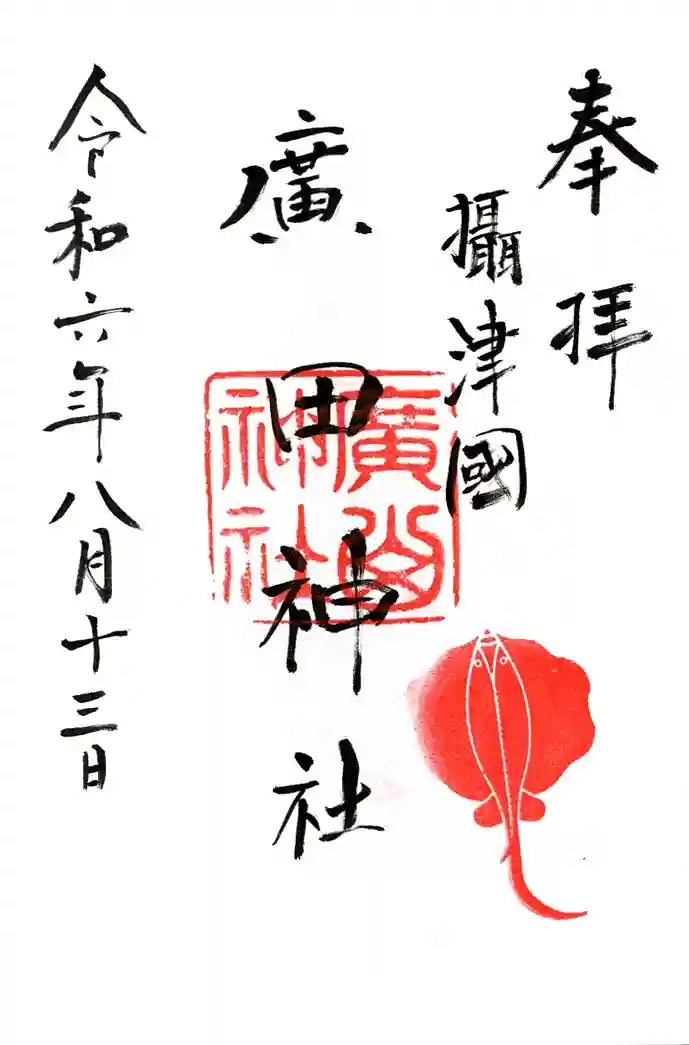 奉拝
攝津國
廣田神社
廣
神社
令和六年八月十三日